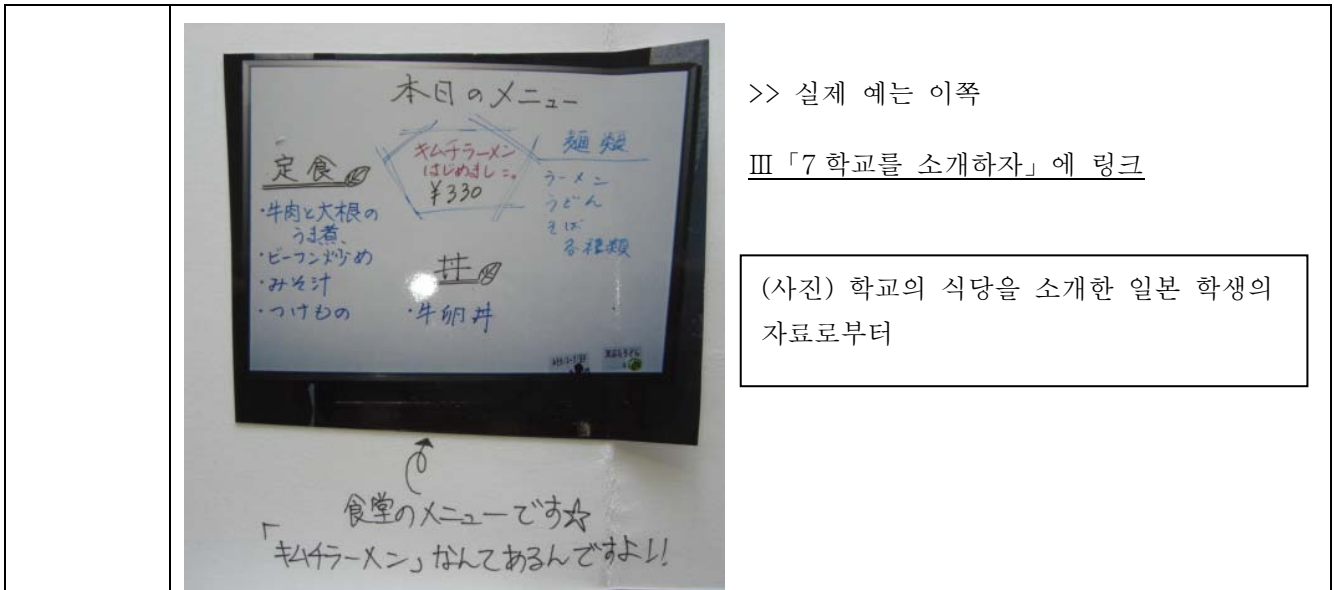 本日のメニュー
定食
・牛肉と大根の
うま煮、
・ビーフン炒め
・みそ汁
・つけもの
キムチラーメン
はじめまし
¥330
丼
・牛卵丼
麺類
ラーメン
うどん
そば
各種類
食堂のメニューです☆
「キムチラーメン」なんてあるんですよ!!
>> 실제 예는 이쪽
Ⅲ「7 학교를 소개하자」에 링크
(사진) 학교의 식당을 소개한 일본 학생의
자료로부터